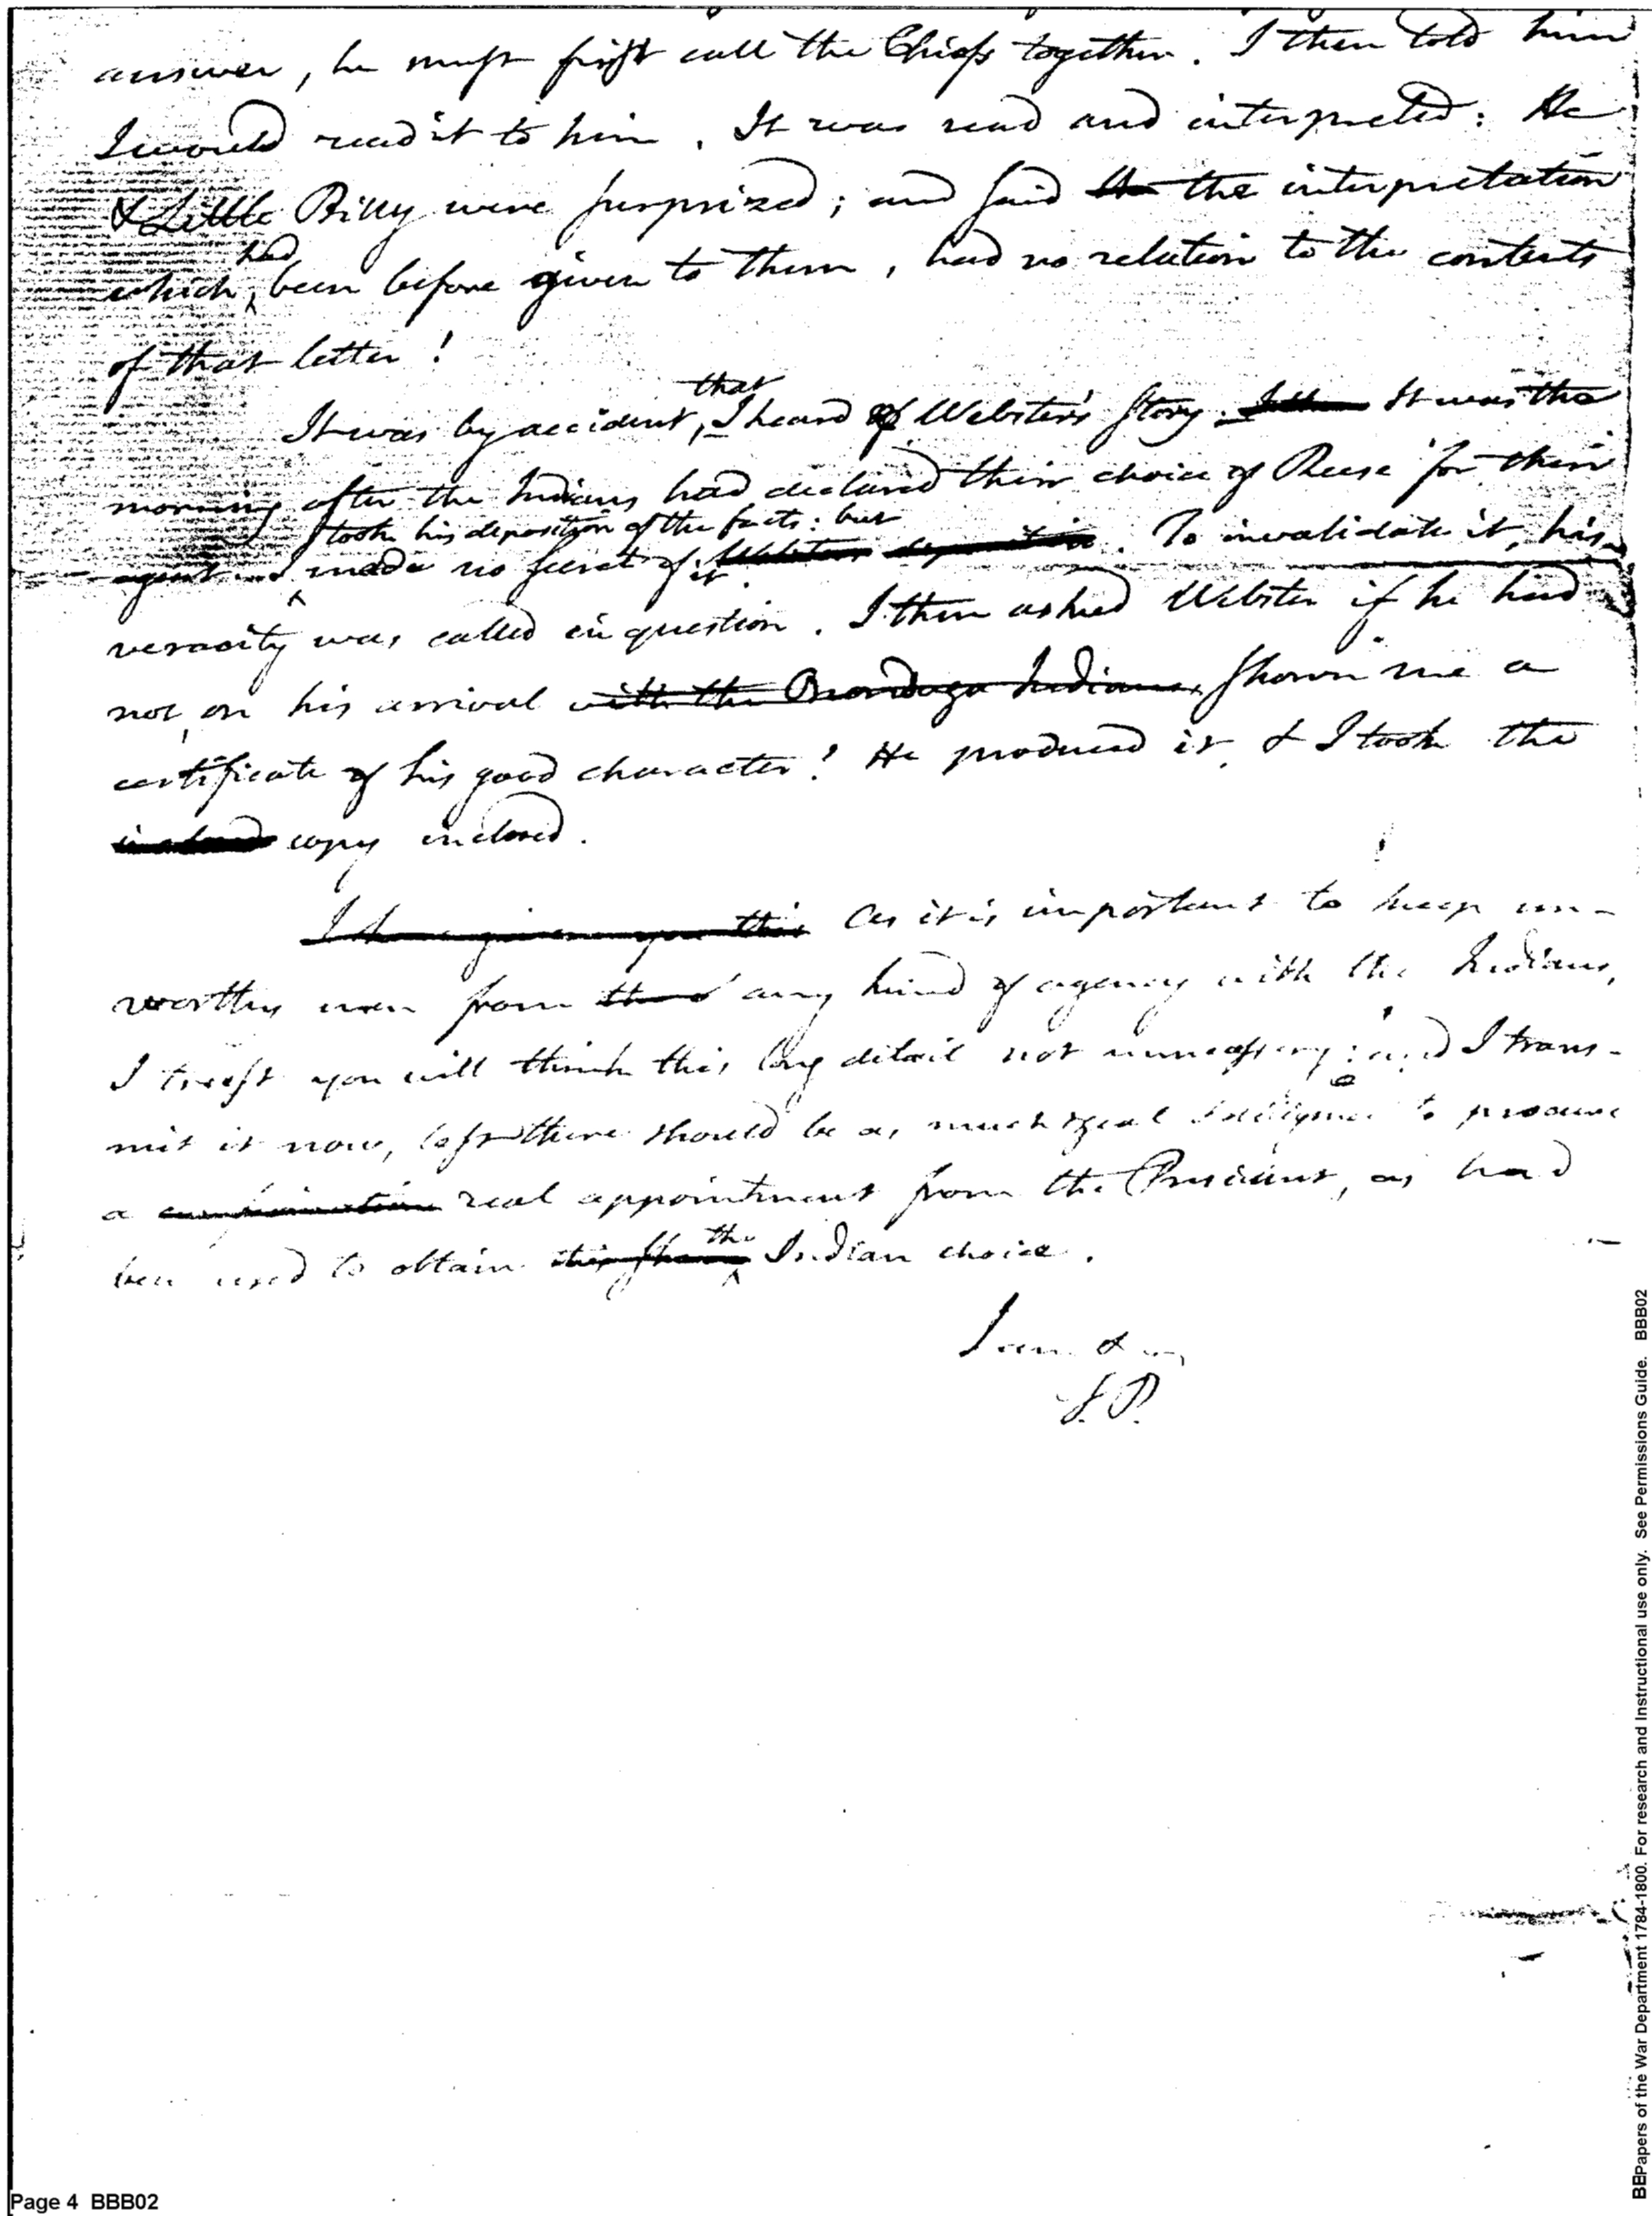 answer, he must first call the Chiefs together. I then told him
I would read it to him. It was read and interpreted: He
& Little Billy were surprized; and said the the interpretation
which had been before given to them, had no relation to the contents
of that letter!
It was by accident, that I heard of Webster's story. It was the
morning after the Indians had declared their choice of Reese for their
agent. I took his deposition of the facts: but
made no secret of it Websters deposition. To invalidate it, his
veracity was called in question. I then asked Webster if he had
not, on his arrival with the Onondaga Indians, shown me a
certificate of his good character? He produced it, & I took the
inclosed copy inclosed.
I have given you this As it is important to keep un-
worthy men from any kind of agency with the Indians,
I trust you will think this long detail not unnecessary: and I trans-
mit it now, lest there should be as much zeal & diligence to procure
a real appointment from the President, as had
been used to obtain this the Indian choice.
I am &c
T.P.
Page 4 BBB02
BBPapers of the War Department 1784-1800. For research and Instructional use only. See Permissions Guide. BBB02